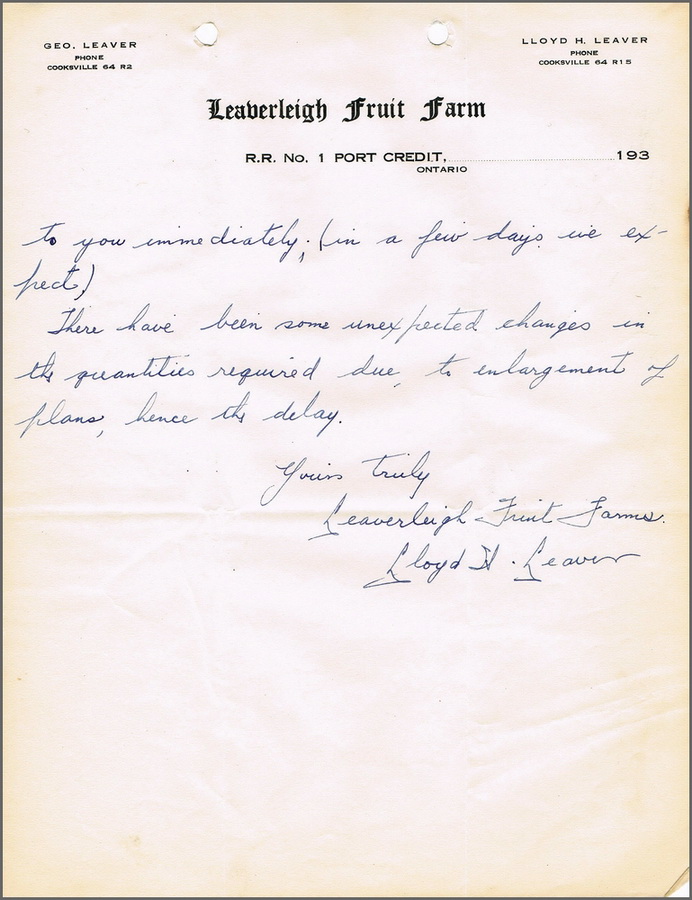 GEO. LEAVER
PHONE
COOKSVILLE 64 R2
LLOYD H. LEAVER
PHONE
COOKSVILLE 64 R15
Leaverleigh Fruit Farm
R.R. No. 1 PORT CREDIT, 193
ONTARIO
to you immediately; (in a few days we ex-
pect,)
There have been some unexpected changes in
the quantities required due, to enlargement of
plans, hence the delay.
Yours truly
Leaverleigh Fruit Farms.
Lloyd H. Leaver